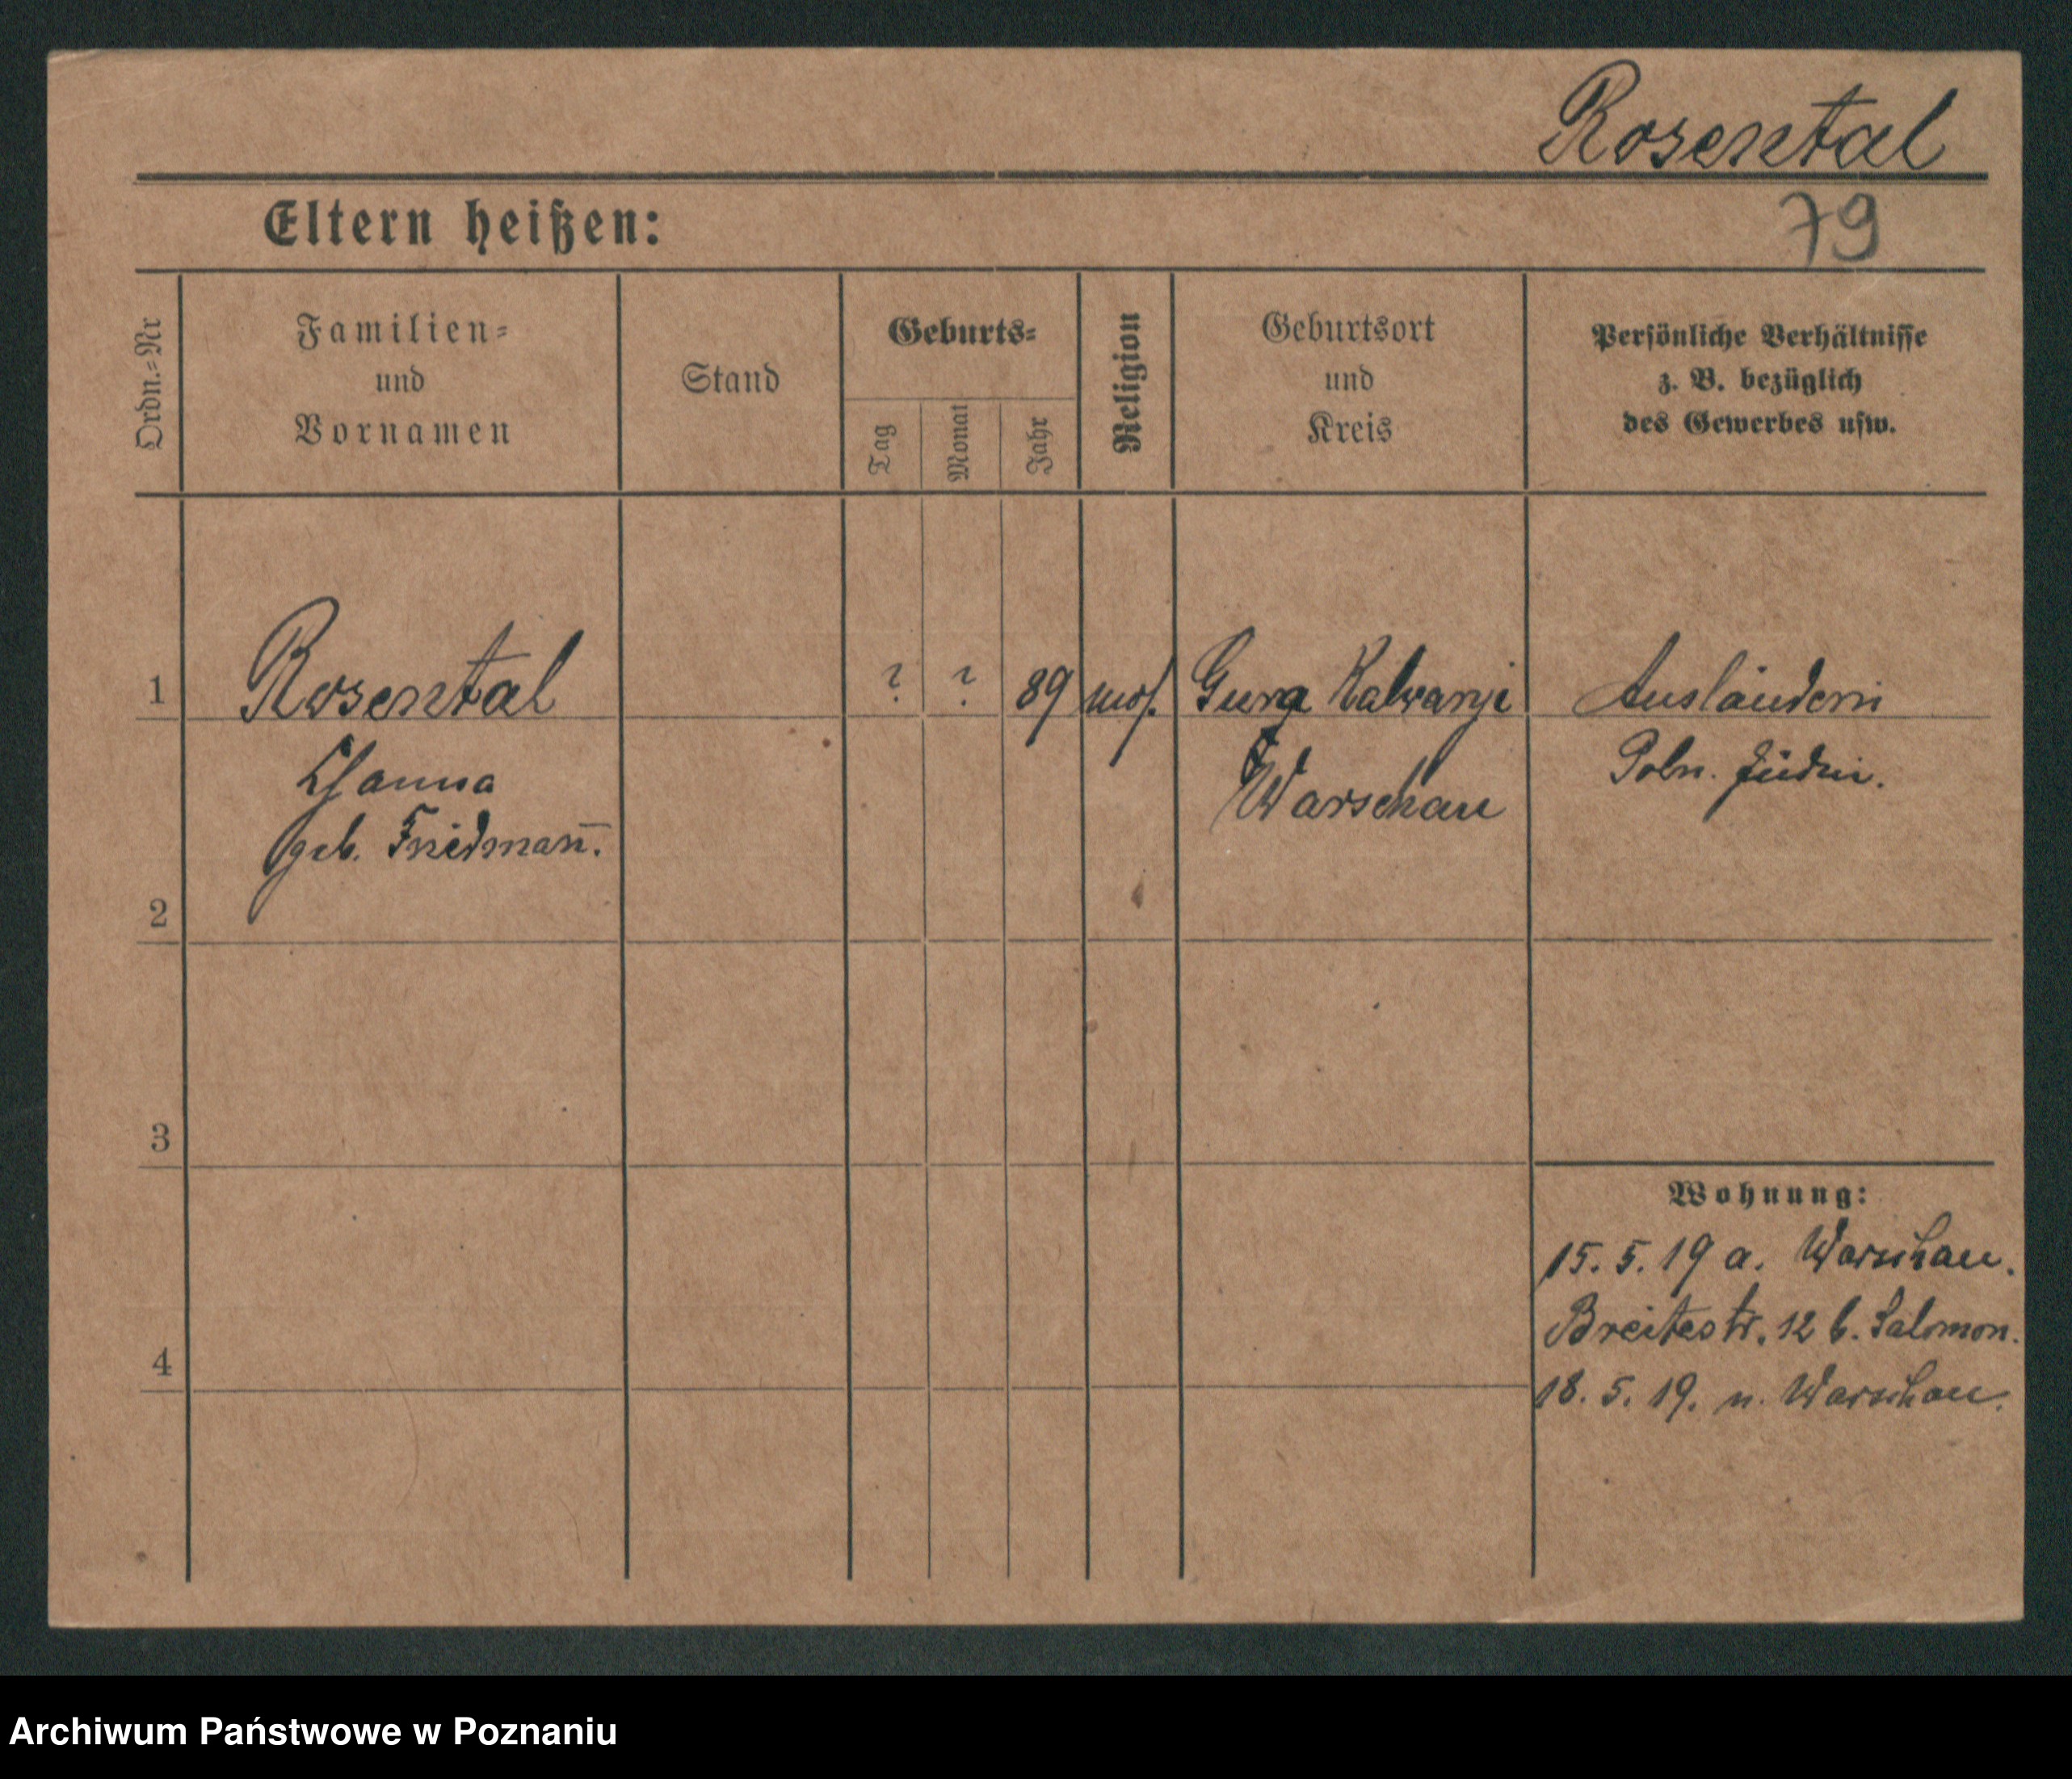 Rosental
79
Eltern heißen:
Ordn.-Nr
Familien-
und
Vornamen
Stand
Geburts-
Tag
Monat
Jahr
Religion
Geburtsort
und
Kreis
Persönliche Verhältnisse
z. B. bezüglich
des Gewerbes usw.
1
Rosental
? ? 89 mos. Gura Kalwarji
Ausländerin
Hanna
Warschau
Poln. Jüdin.
geb. Friedman̄.
2
3
Wohnung:
15. 5. 19 a. Warschau.
Breitestr. 12 b. Salomon.
4
18. 5. 19. n. Warschau.
Archiwum Państwowe w Poznaniu